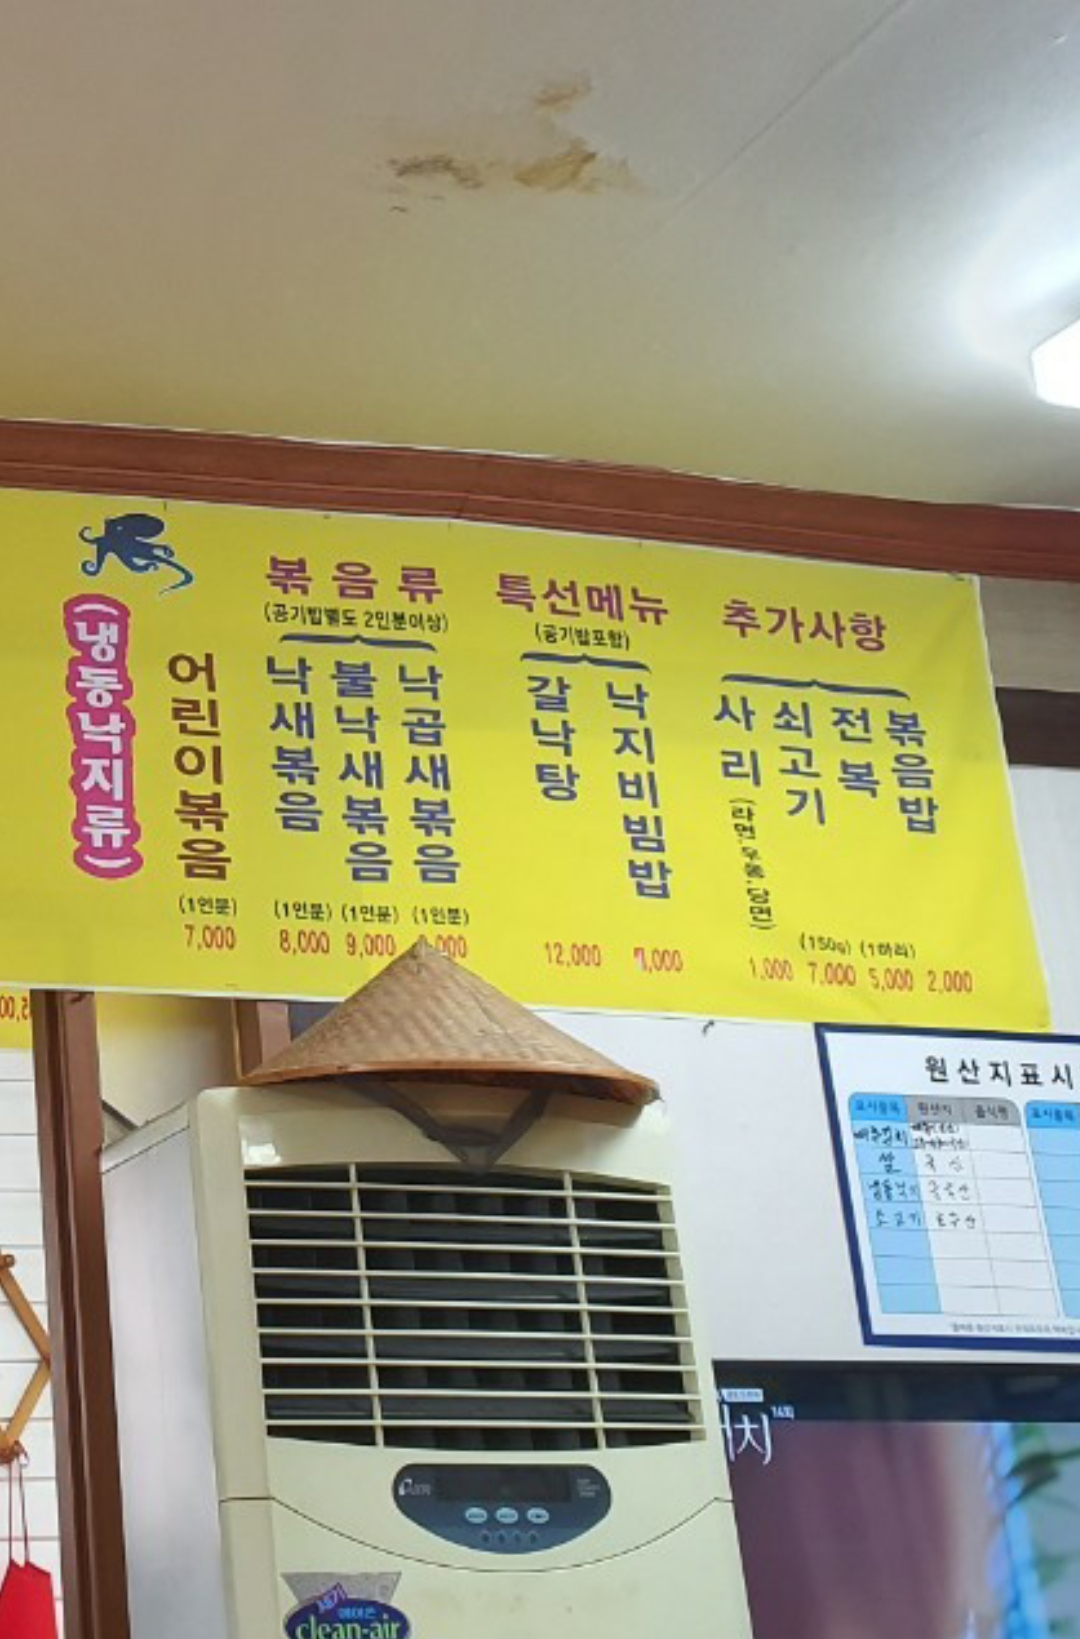 (냉동낙지류)
어린이볶음
(1인분)
7,000
볶음류
(공기밥별도 2인분이상)
낙새볶음
(1인분)
8,000
불낙새볶음
(1인분)
9,000
낙곱새볶음
(1인분)
특선메뉴
(공기밥포함)
갈낙탕
12,000
낙지비빔밥
7,000
추가사항
사리
(라면,우동,당면)
1,000
쇠고기
(150g)
7,000
전복
(1마리)
5,000
볶음밥
2,000
원산지표시
표시품목 원산지 음식명 표시품목
배추김치
쌀 국산
소고기 호주산
14회
에어콘
clean-air